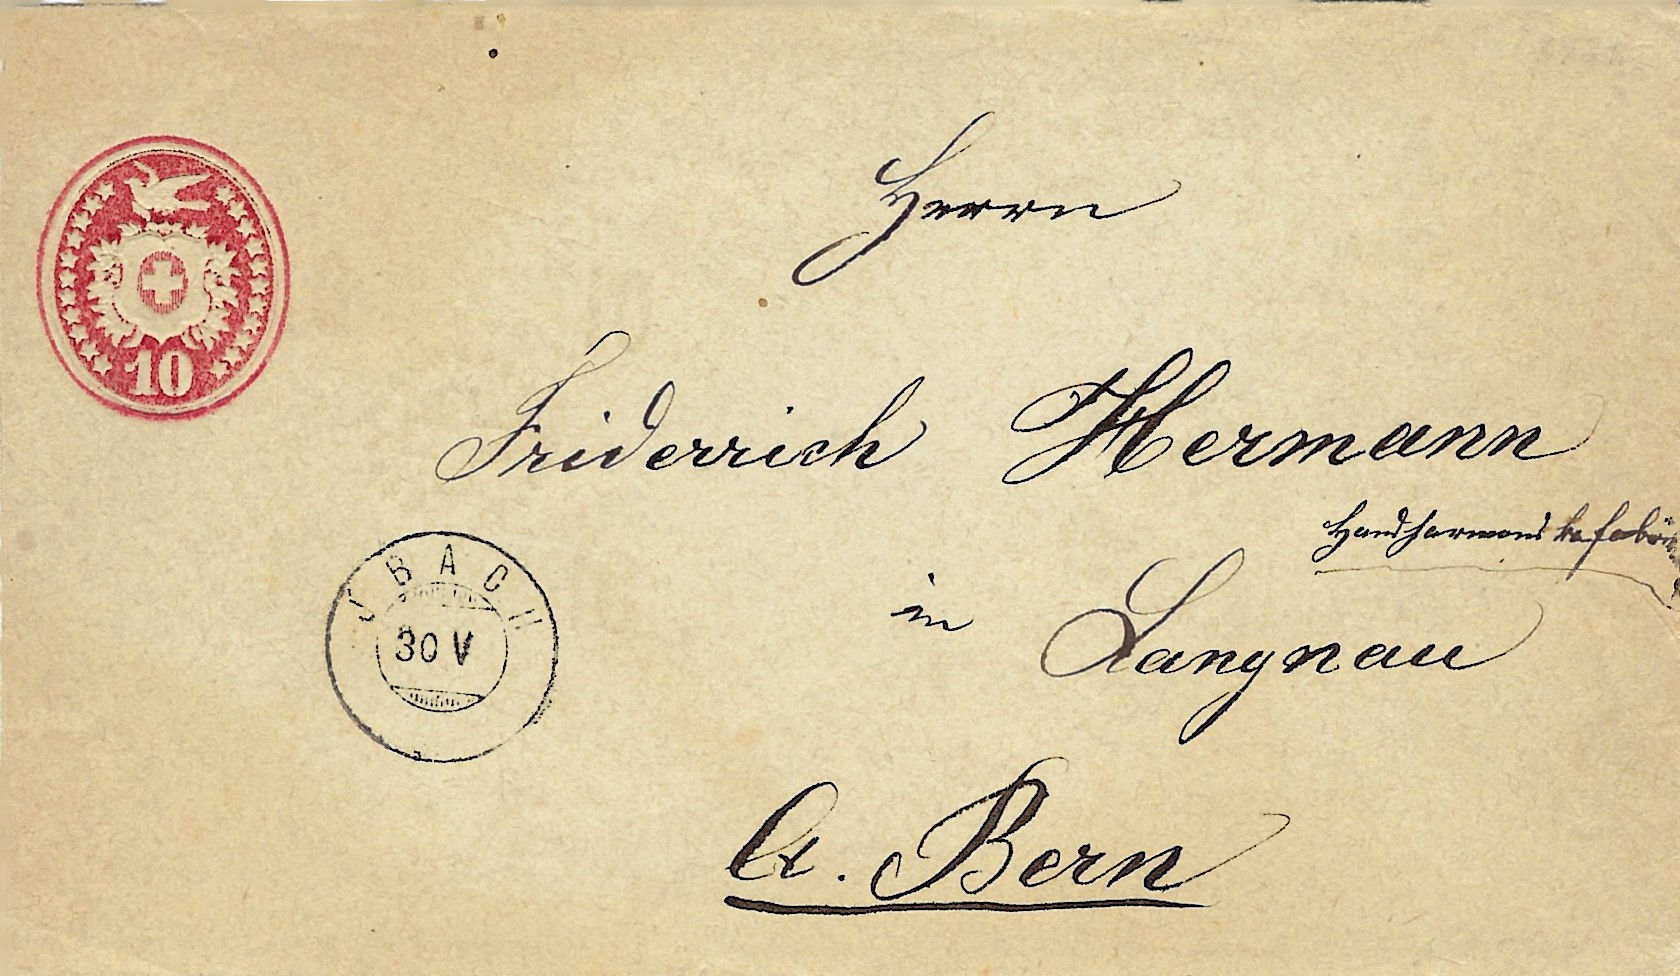 10
Herrn
Friderrich Hermann
Handharmonikafabrik
in Langnau
Ct. Bern
IBACH
30 V